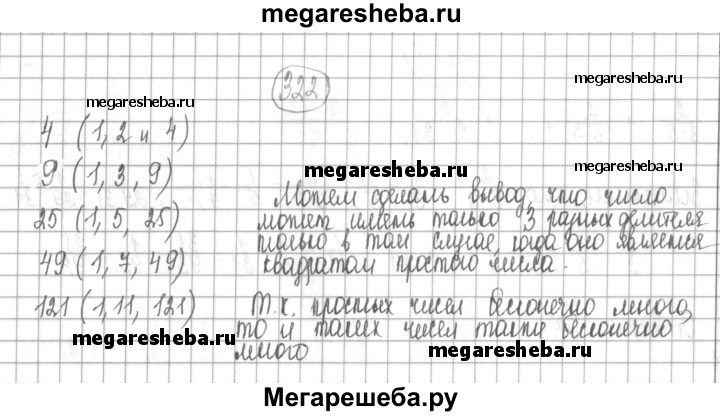 megaresheba.ru
322
megaresheba.ru
megaresheba.ru
4 (1, 2 и 4)
9 (1, 3, 9)
megaresheba.ru
megaresheba.ru
Можем сделать вывод, что число
25 (1, 5, 25) может иметь только 3 разных делителя
только в том случае, когда оно является
49 (1, 7, 49) квадратом простого числа.
121 (1, 11, 121) Т.к. простых чисел бесконечно много,
то и таких чисел также бесконечно
megaresheba.ru
много
megaresheba.ru
Мегарешеба.ру